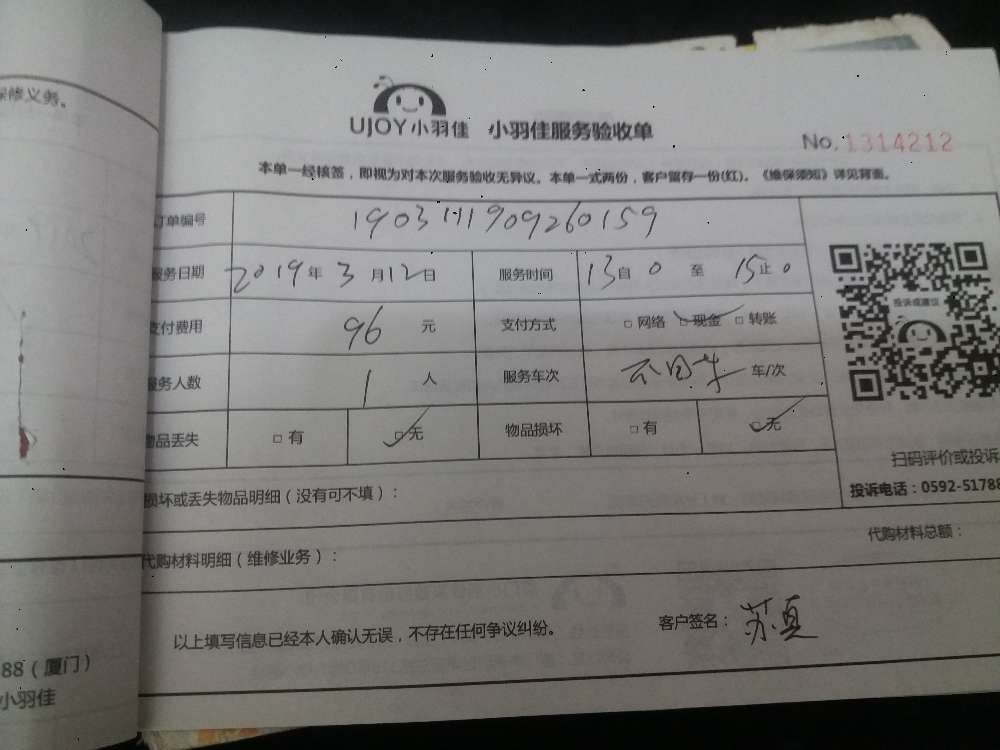 保修义务。
UJOY小羽佳 小羽佳服务验收单
No.1314212
本单一经核签，即视为对本次服务验收无异议。本单一式两份，客户留存一份(红)。《维保须知》详见背面。
订单编号 1903111909260159
服务日期 2019年3月12日 服务时间 13自0至15止0
支付费用 96元 支付方式 □网络 □现金 □转账
投诉或建议
服务人数 1人 服务车次 车/次
物品丢失 □有 □无 物品损坏 □有 □无
扫码评价或投诉
损坏或丢失物品明细（没有可不填）：
投诉电话：0592-51788
代购材料明细（维修业务）：
代购材料总额：
以上填写信息已经本人确认无误，不存在任何争议纠纷。
客户签名：苏真
88（厦门）
小羽佳